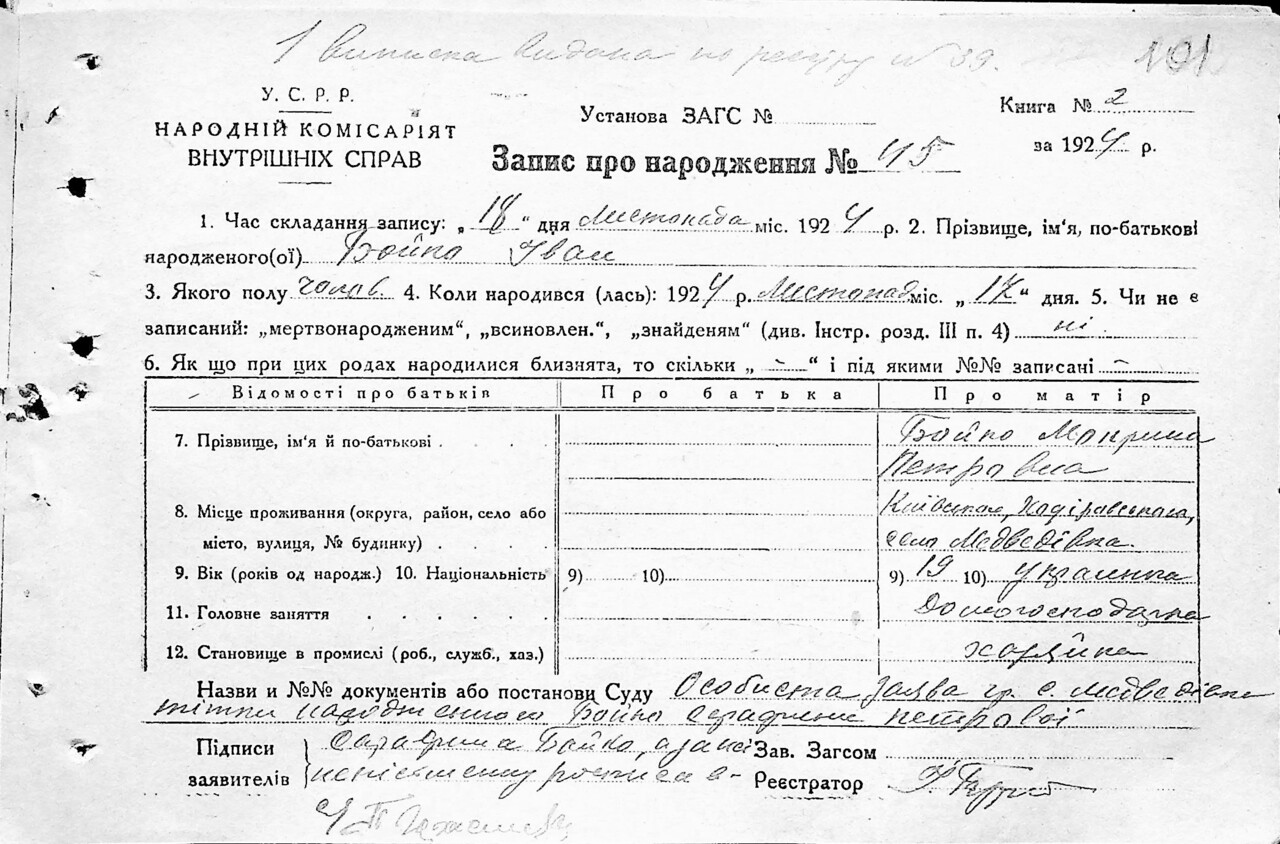 1 виписка видана по реєстру № 39.
101
У. С. Р. Р.
НАРОДНІЙ КОМІСАРІЯТ
ВНУТРІШНІХ СПРАВ
Установа ЗАГС №
Книга № 2
за 1924 р.
Запис про народження № 45
1. Час складання запису: „18“ дня Листопада міс. 1924 р. 2. Прізвище, ім'я, по-батькові
народженого(ої) Бойко Іван
3. Якого полу чолов 4. Коли народився (лась): 1924 р. Листопад міс. „ “ дня. 5. Чи не є
записаний: „мертвонародженим“, „всиновлен.“, „знайденям“ (див. Інстр. розд. III п. 4) ні
6. Як що при цих родах народилися близнята, то скільки „ — “ і під якими №№ записані —
Відомості про батьків Про батька Про матір
7. Прізвище, ім'я й по-батькові Бойко Мокрина
Петровна
8. Місце проживання (округа, район, село або Київська,
місто, вулиця, № будинку) село Медведівка
9. Вік (років од народж.) 10. Національність 9) 10) 9) 19 10) українка
11. Головне заняття
12. Становище в промислі (роб., служб., хаз.) хазяйка
Назви и №№ документів або постанови Суду Особиста заява гр. с. Медведівка
тітки народженного Бойко Серафими Петрової
Підписи Серафима Бойко, Зав. Загсом
заявителів Реєстратор